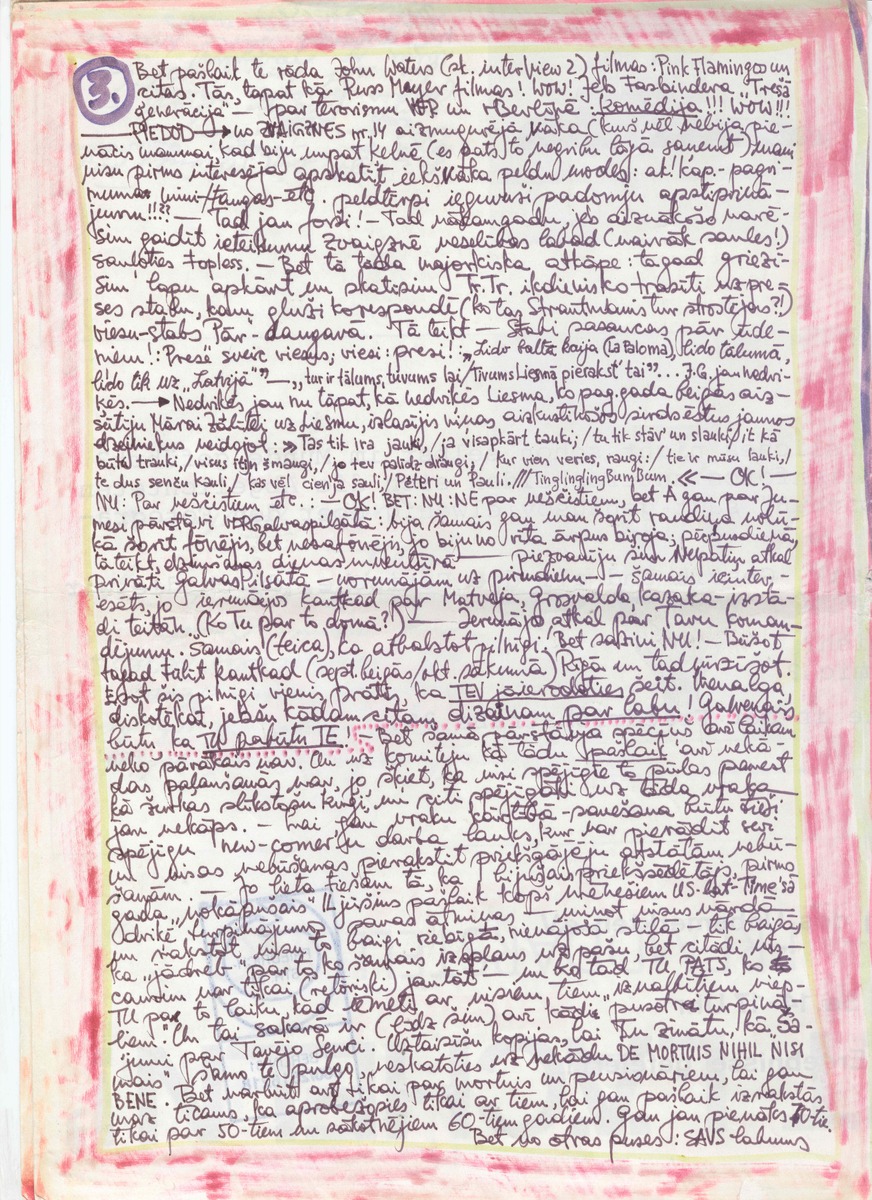 3.
Bet pašlaik te rāda John Waters (sk. interview 2) filmas: Pink Flamingos un
citas. Tās, tāpat kā Russ Meyer filmas! WOW! Jeb Fasbindera "Trešā
ģenerācija" — par terorismu VFR un rBerlīnē: komēdija!!! WOW!!!
PIEDOD → no ZVAIGZNES nr. 14 aizmugurējā vāka (kurš vēl nebija pie-
nācis mammai, kad biju turpat Ķelnē (es pats to negribu tajā saņemt)) mani
visu pirms interesēja apskatīt peldu modes: ak! kap.- pagri-
muma mini-/tangas- etc. peldtērpi ieguvuši padomju apstiprinā-
jumu!!!?? — Tad jau forši! — Tad nākamgad, jeb aiznākošo varē-
sim gaidīt ieteikumu Zvaigznē veselības labad (vairāk saules!)
sauļoties topless. — Bet tā tāda majorkiska atkāpe: tagad griezī-
sim lapu apkārt un skatīsim Tr.Tr. ikdienišķo trasīti uz pre-
ses stabu, kam gluži korespondē (ko tas Strautmanis tur strostējas?!)
viesu-stabs Pār-daugavā. Tā teikt — Stabi sasaucas pār ūde-
ņiem!: Prese sveic viesus; viesi: presi!: "Lido baltā kaija (La Paloma), lido tālumā,
lido tik uz "Latvijā"" — "tur ir tālums, tuvums lai / Tīvums Liesmā pierakst' tai"... J.G. jau nedvī-
ķēs. → Nedvīkēs jau nu tāpat, kā nedvīkēs Liesma, ko pag. gada beigās aiz-
sūtīju Mārai Zālītei uz Liesmu, izlasījis viņas aizkustinošos sirdsēstus jaunos
dzejniekus veidojot: » Tas tik ir a jauki, / ja visapkārt tauki; / tu tik stāv' un slauki, / it kā
būtu trauki, / visus šmaugi, / jo tev palīdz draugi; / kur vien veries, raugi: / tie ir mūsu lauki, /
te dus senču kauli / kas vēl cienīja sauli, / Pēteri un Pauli. /// TinglinglingBumBum. « — OK! —
NU: Par nešķīstiem etc.: — OK! BET: NU: NE par nešķīstiem, bet A gan par Jū-
mesi pārstāvi VFR galvaspilsētā: bija šamais gan man šorīt
kā šorīt fōnējis, bet nesafōnējis, jo biju no rīta ārpus biroja; pēcpusdienā,
tā teikt, dzimšanas dienas — piezvanīju šim Nepatīn atkal
privāti GalvasPilsētā — norunājām uz pirmdienu — šamais ieinter-
esēts, jo ierunājos kautkad par Matveja, Grosvalda, Kazaka-izstā-
di teitan. (Ko Tu par to domā?!) — Ierunājo atkal par Tavu koman-
dējumu. Šamais (teica), ka atbalstot pilnīgi. Bet sativi NU! — Būšot
tagad talit kautkad (sept. beigās/okt. sākumā) Rīgā un tad
Esot šis pilnīgi vienis prātis, ka TEV jāierodoties šeit. Vienalga,
diskotēkai, jebšu kādam citām dizainam par labu! Galvenais
būtu ka TU nākātu TE! Bet šamā pārstāvja spēcīns arī laikam
neko pārākais nav. Un uz komiteju kā tādu pašlaik arī nekā-
das paļaušanās nav, jo šķiet, ka visi spējīgie to pulas pamest
kā žurkas slīkstošu kuģi, un citi spējīgāki uz tāda vraka
jau nekāps. — Lai gan vraku kārtībā-savešana būtu tieši
spējīgu new-comer'ju darba lauks, kur var pierādīt sevi
un visas nebūšanas pierakstīt priekšgājēju atstātām nebū-
šanām. — Jo lieta tiešām tā, ka bijušais priekšsēdētājs, pirms
gada "nokāpušais" IL jūrsins pašlaik kopš mēnešiem US-Lat-Time'sā
drikē turpinājums savas atmiņas — minot visus vārdā
un rakstot visu to baigi riebīgā, vienājošā stilā — tik baigās
ka "jādreb" par to ko šamais izplaus uz pašu, bet citādi
caurām var tikai (retōriski) jautāt! — un ko tad TU PATS, ko
TU par to laiku, kad tēmēti ar visiem tiem "izvalkātiem viep-
ļiem". Un tai sakarā ir (līdz šim) arī kādi pusotra turpinā-
jumi par Tavējo Senci. Uztaisīšu kopijas, lai Tu zinātu, kā "Ša-
mais" šamo te pulgo, neskatoties uz nekādu DE MORTUIS NIHIL NISI
BENE. Bet varbūt arī tikai par mortuis un pensionāriem, lai gan
maz ticams, ka aprobežosies tikai ar tiem, lai gan pašlaik izrakstās
tikai par 50-tiem un sākotnējiem 60-tiem gadiem. Gan jau pienāks 70-tie.
Bet no otras puses: SAVS labums